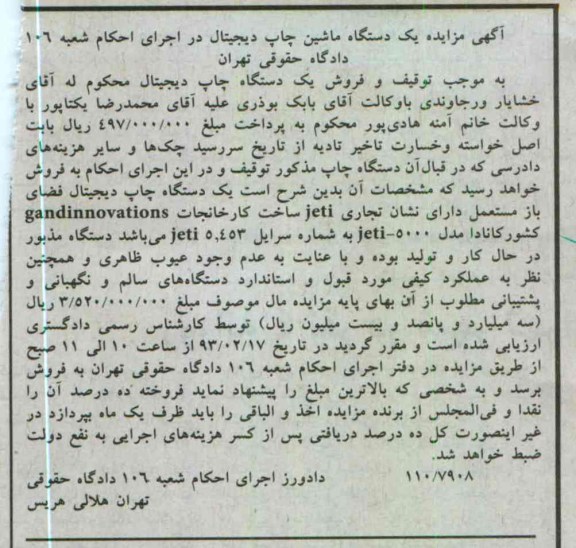 آگهی مزایده یک دستگاه ماشین چاپ دیجیتال در اجرای احکام شعبه ۱۰۶
دادگاه حقوقی تهران
به موجب توقیف و فروش یک دستگاه چاپ دیجیتال محکوم له آقای
خشایار ورجاوندی باوکالت آقای بابک بوذری علیه آقای محمدرضا یکتاپور با
وکالت خانم آمنه هادی‌پور محکوم به پرداخت مبلغ ۴۹۷/۰۰۰/۰۰۰ ریال بابت
اصل خواسته وخسارت تاخیر تادیه از تاریخ سررسید چک‌ها و سایر هزینه‌های
دادرسی که در قبال‌آن دستگاه چاپ مذکور توقیف و در این اجرای احکام به فروش
خواهد رسید که مشخصات آن بدین شرح است یک دستگاه چاپ دیجیتال فضای
باز مستعمل دارای نشان تجاری jeti ساخت کارخانجات gandinnovations
کشورکانادا مدل jeti-۵۰۰۰ به شماره سرایل jeti ۵,٤۵۳ می‌باشد دستگاه مذبور
در حال کار و تولید بوده و با عنایت به عدم وجود عیوب ظاهری و همچنین
نظر به عملکرد کیفی مورد قبول و استاندارد دستگاه‌های سالم و نگهبانی و
پشتیبانی مطلوب از آن بهای پایه مزایده مال موصوف مبلغ ۳/۵۲۰/۰۰۰/۰۰۰ ریال
(سه میلیارد و پانصد و بیست میلیون ریال) توسط کارشناس رسمی دادگستری
ارزیابی شده است و مقرر گردید در تاریخ ۹۳/۰۲/۱۷ از ساعت ۱۰ الی ۱۱ صبح
از طریق مزایده در دفتر اجرای احکام شعبه ۱۰۶ دادگاه حقوقی تهران به فروش
برسد و به شخصی که بالاترین مبلغ را پیشنهاد نماید فروخته ده درصد آن را
نقدا و فی‌المجلس از برنده مزایده اخذ و الباقی را باید ظرف یک ماه بپردازد در
غیر اینصورت کل ده درصد دریافتی پس از کسر هزینه‌های اجرایی به نفع دولت
ضبط خواهد شد.
۱۱۰/۷۹۰۸ دادورز اجرای احکام شعبه ۱۰۶ دادگاه حقوقی
تهران هلالی هریس